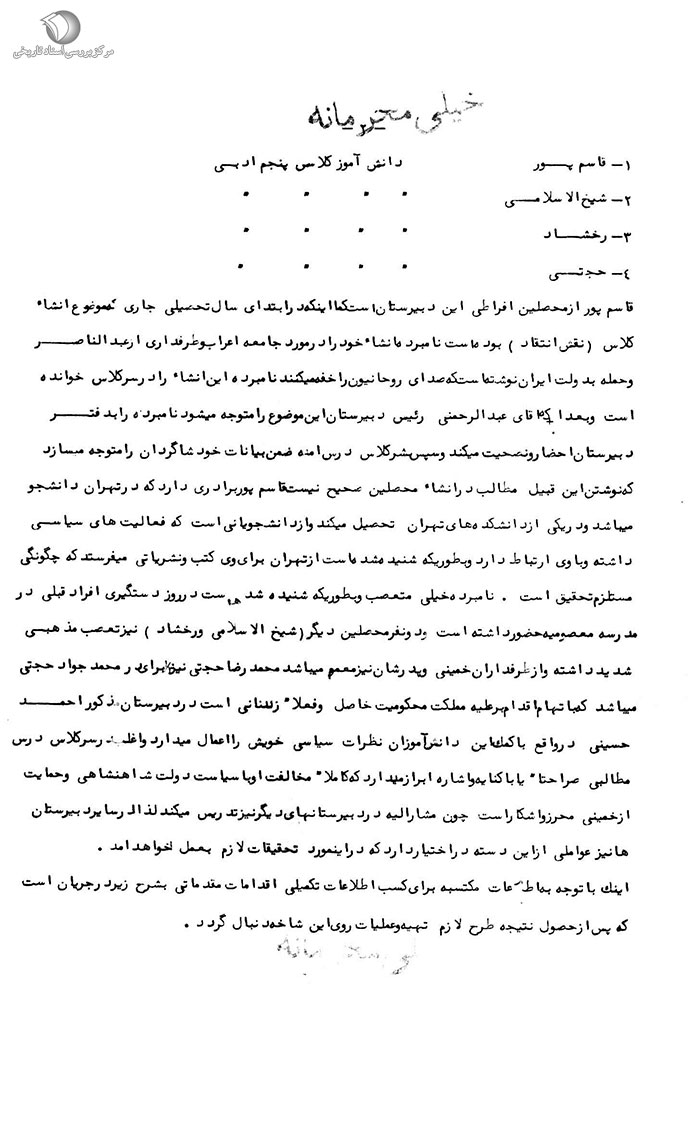 مرکز بررسی اسناد تاریخی
خیلی محرمانه
۱- قاسم پور دانش آموز کلاس پنجم ادبی
۲- شیخ الاسلامی " " " "
۳- رخشاد " " " "
۴- حجتی " " " "
قاسم پور از محصلین افراطی این دبیرستان است کما اینکه در ابتدای سال تحصیلی جاری که موضوع انشاء
کلاس (نقش انتقاد) بوده است نامبرده انشاء خود را در مورد جامعه اعراب و طرفداری از عبدالناصر
وحمله بدولت ایران نوشته است که صدای روحانیون را خفه میکنند نامبرده این انشاء را در سر کلاس خوانده
است وبعدا که آقای عبدالرحمنی رئیس دبیرستان این موضوع را متوجه میشود نامبرده را بدفتر
دبیرستان احضار ونصحیت میکند وسپس بسر کلاس درس آمده ضمن بیانات خود شاگردان را متوجه میسازد
که نوشتن این قبیل مطالب در انشاء محصلین صحیح نیست قاسم پور برادری دارد که در تهران دانشجو
میباشد ودر یکی از دانشکده های تهران تحصیل میکند واز دانشجویانی است که فعالیت های سیاسی
داشته وباوی ارتباط دارد وبطوریکه شنیده شده است از تهران برای وی کتب ونشریاتی میفرستد که چگونگی
مستلزم تحقیق است . نامبرده خیلی متعصب وبطوریکه شنیده شده است در روز دستگیری افراد قبلی در
مدرسه معصومیه حضور داشته است ودونفر محصلین دیگر (شیخ الاسلامی ورخشاد) نیز تعصب مذهبی
شدید داشته واز طرفداران خمینی وپدرشان نیز معمم میباشد محمد رضا حجتی نیز برادر محمد جواد حجتی
میباشد که باتهام اقدام برعلیه مملکت محکومیت حاصل وفعلا" زندانی است در دبیرستان مذکور احمد
حسینی در واقع با کمک این دانش آموزان نظرات سیاسی خویش را اعمال میدارد واغلب در سر کلاس درس
مطالبی صراحتا" یا با کنایه واشاره ابراز میدارد که کاملا" مخالفت او با سیاست دولت شاهنشاهی وحمایت
از خمینی محرز واشکار است چون مشارالیه در دبیرستانهای دیگر نیز تدریس میکند لذا در سایر دبیرستان
ها نیز عواملی از این دسته در اختیار دارد که در اینمورد تحقیقات لازم بعمل خواهد امد .
اینك با توجه به اطلاعات مکتسبه برای کسب اطلاعات تکمیلی اقدامات مقدماتی بشرح زیر در جریان است
که پس از حصول نتیجه طرح لازم تهیه وعملیات روی این شاخه دنبال گردد .
خیلی محرمانه